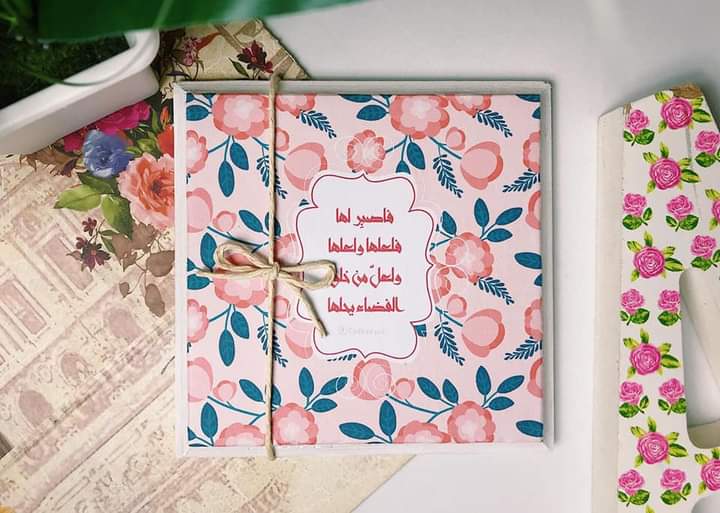 فاصبِر لها
فلعلها ولعلها
ولعلّ من خلق
الفضاء يحلها